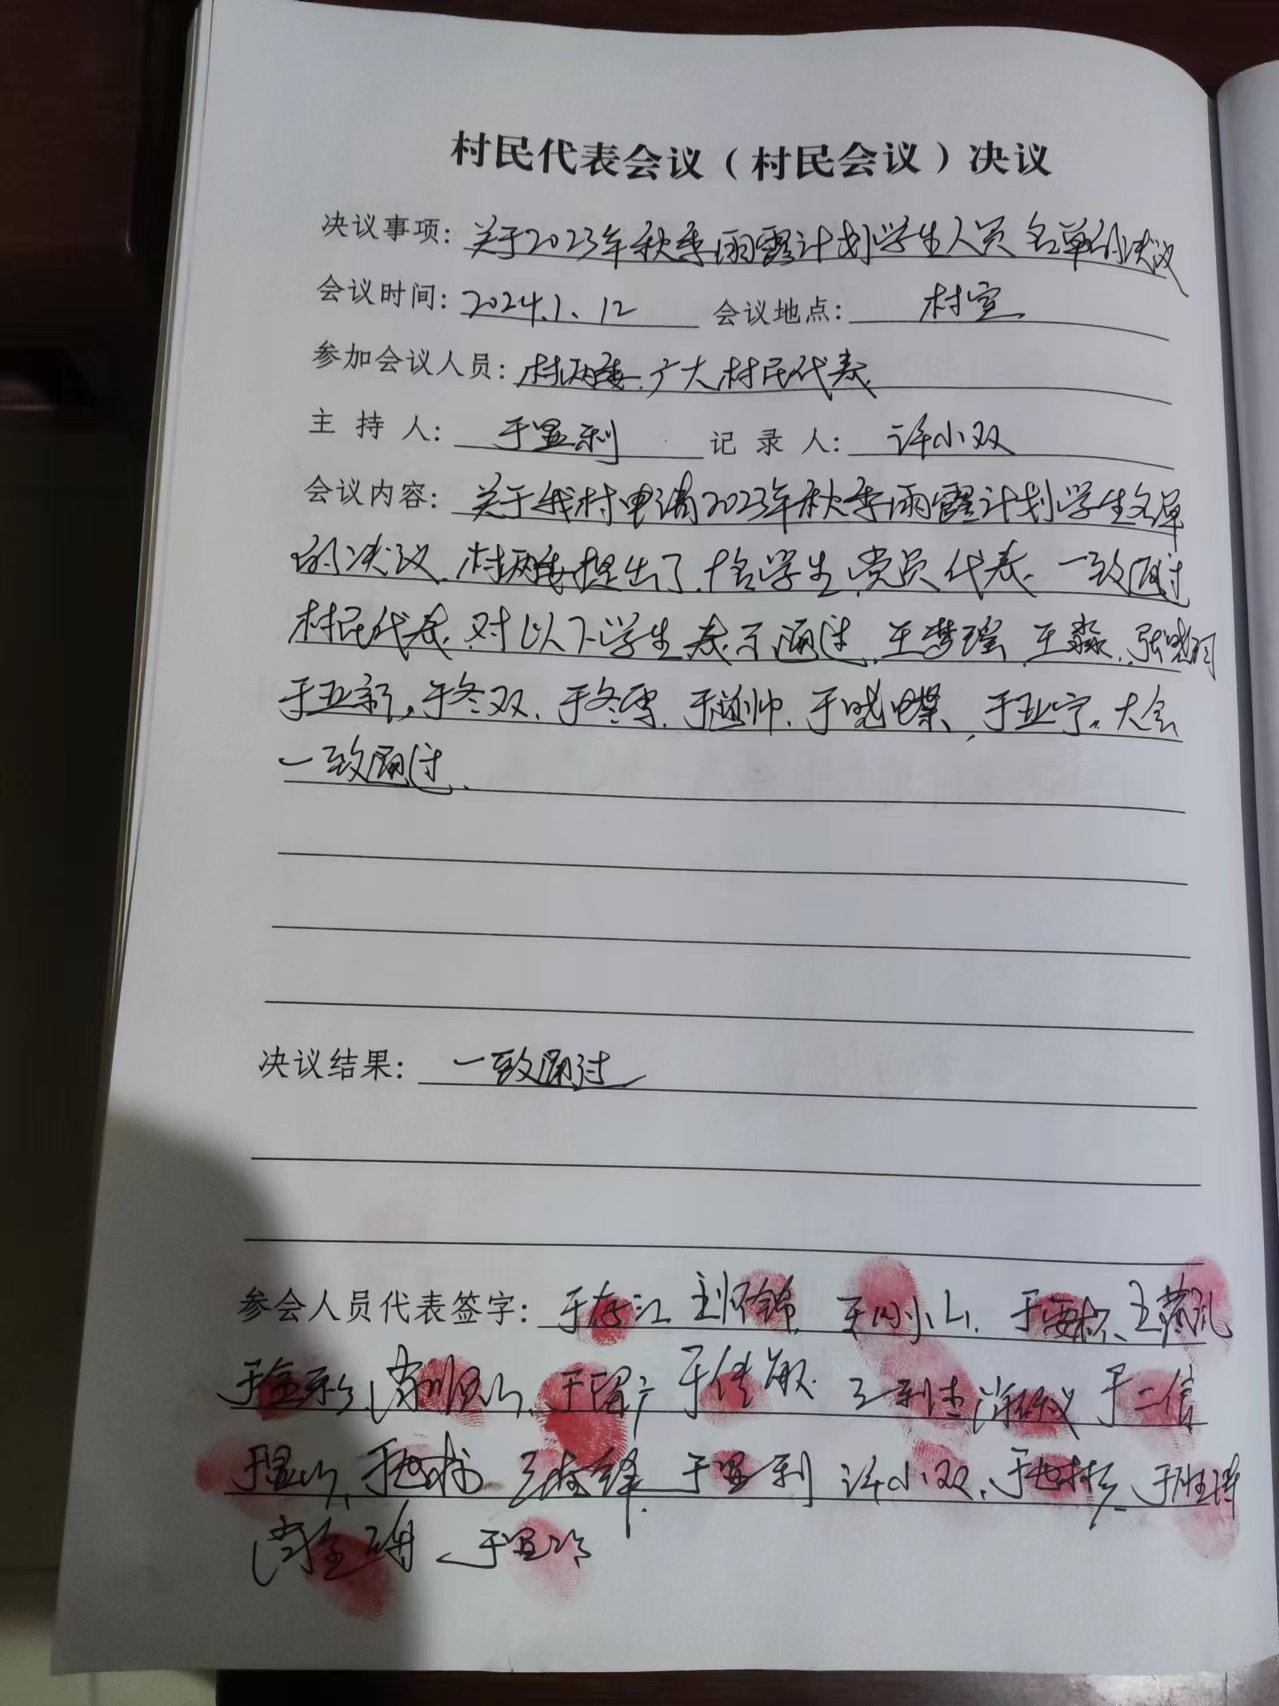 村民代表会议（村民会议）决议
决议事项：关于2023年秋季雨露计划学生人员名单的决议
会议时间：2024.1.12 会议地点：村室
参加会议人员：村两委.广大村民代表
主持人：于显利 记录人：许小双
会议内容：关于我村申请2023年秋季雨露计划学生名单
的决议.村两委提出了.十名学生,党员代表.一致通过
村民代表.对以下学生表示通过.王梦瑶.王淼.张晓
于亚新,于冬双.于冬雪.于 帅.于晓蝶,于亚宁。大会
一致通过.
决议结果：一致通过
参会人员代表签字：于存江 小山.于 王
于 于 于佳敏 王利杰 于二信
于显 于 王 锋.于显利 许小双.于 于胜
于显